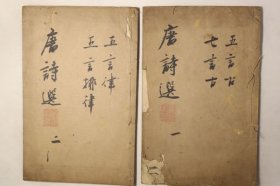 五言古
七言古
唐詩選
一
五言律
五言排律
唐詩選
二